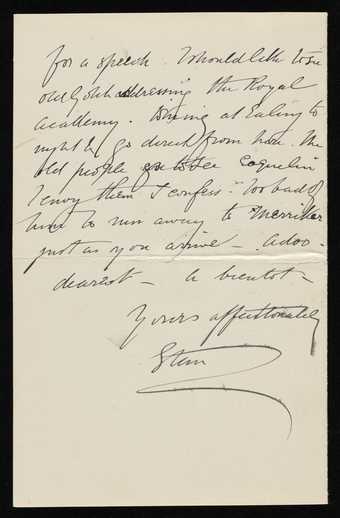 for a speech. I should like to see
old Gosh addressing the Royal
academy. Dining at Ealing to
night & go direct from here. The
old people go to see Coquelin
I envy them I confess. Too bad of
him to run away to
just as you arrive – adoo –
dearest – a bientot –
Yours affectionately
Stern